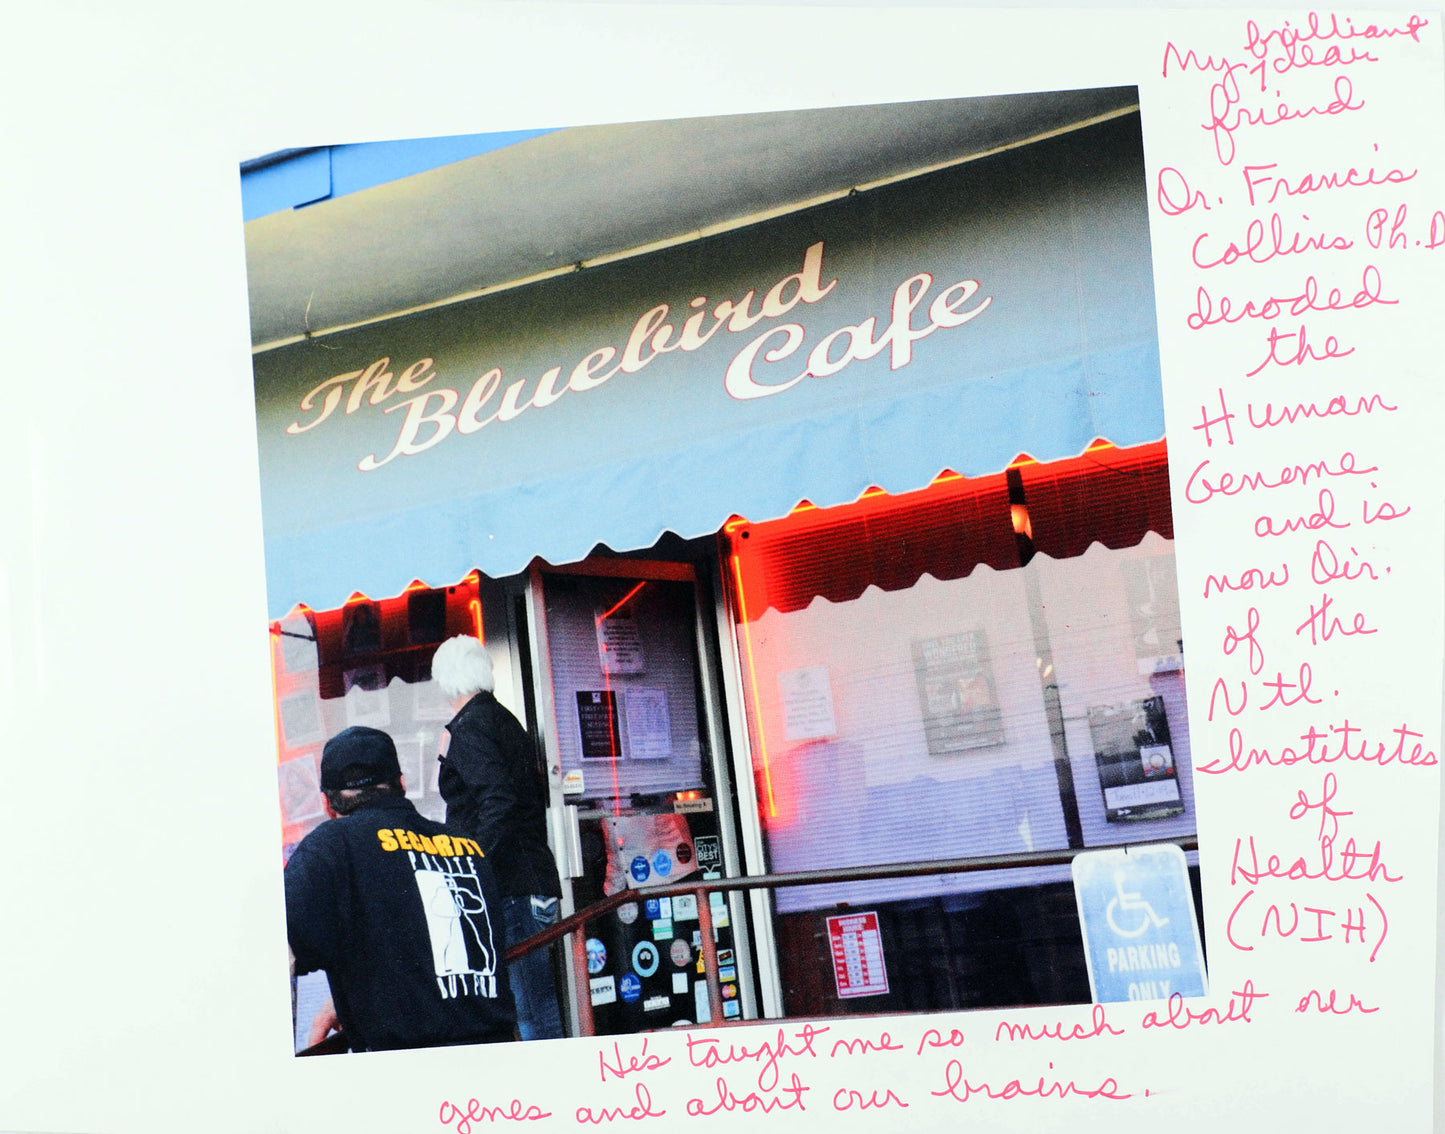 The
Bluebird
Cafe
SECURITY
POLITE
THE
CITY'S
BEST
BUSINESS
HOURS
PARKING
ONLY
My brilliant
dear
friend
Dr. Francis
Collins Ph.D
decoded
the
Human
Genome
and is
now Dir.
of the
Ntl.
Institutes
of
Health
(NIH)
He's taught me so much about our
genes and about our brains.